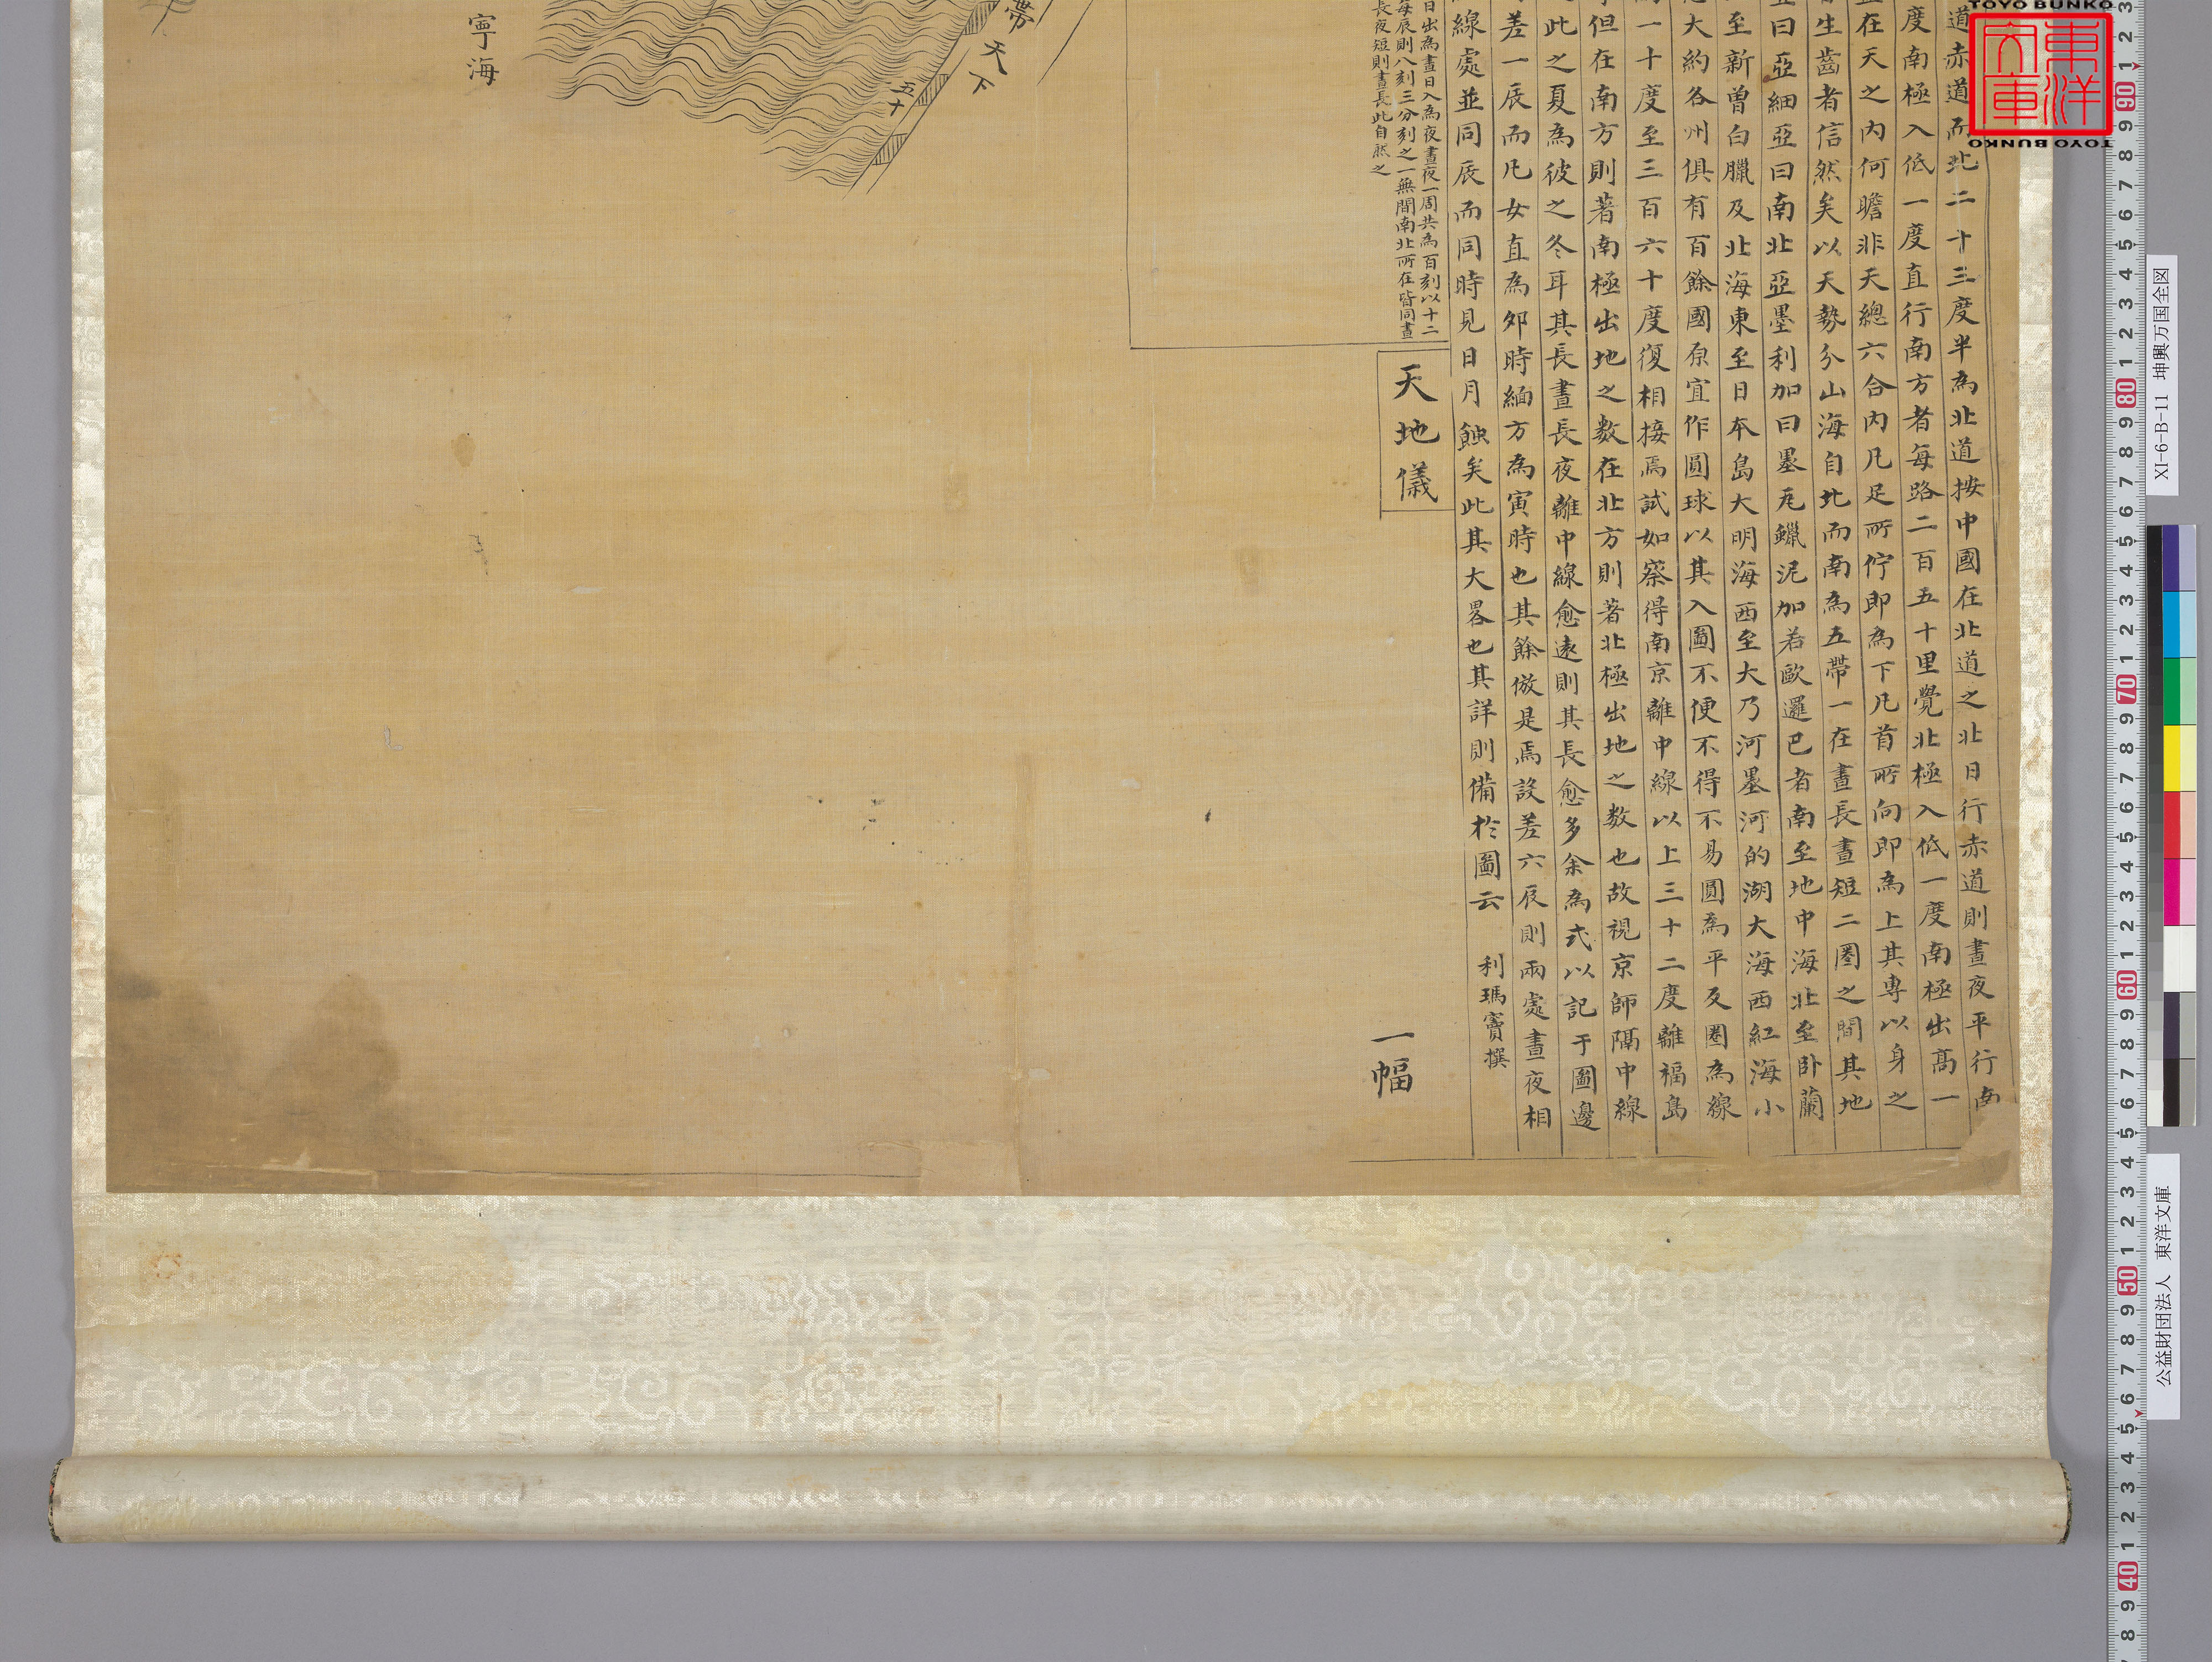 道赤道而北二十三度半為北道按中國在北道之北日行赤道則晝夜平行南
度南極入低一度直行南方者每路二百五十里覺北極入低一度南極出高一
在天之內何瞻非天總六合內凡足所佇即為下凡首所向即為上其專以身之
生齒者信然矣以天勢分山海自北而南為五帶一在晝長晝短二圈之間其地
曰亞細亞曰南北亞墨利加曰墨瓦蠟泥加若歐邏巴者南至地中海北至卧蘭
至新曾白臘及北海東至日本島大明海西至大乃河墨河的湖大海西紅海小
大約各州俱有百餘國原宜作圓球以其入圖不便不得不易圓為平反圈為線
一十度至三百六十度復相接焉試如察得南京離中線以上三十二度離福島
但在南方則著南極出地之数在北方則著北極出地之数也故視京師隔中線
此之夏為彼之冬耳其長晝長夜離中線愈遠則其長愈多余為式以記于圖邊
差一辰而凡女直為卯時緬方為寅時也其餘倣是焉設差六辰則兩處晝夜相
線處並同辰而同時見日月蝕矣此其大畧也其詳則備於圖云 利瑪竇撰
日出為晝日入為夜晝夜一周共為百刻以十二
每辰則八刻三分刻之一無間南北所在皆同晝
長夜短則晝長此自然之
天地儀
一幅
帶天下
五十
寧海
TOYO BUNKO
東洋文庫
TOYO BUNKO
XI-6-B-11 坤輿万国全図
公益財団法人 東洋文庫